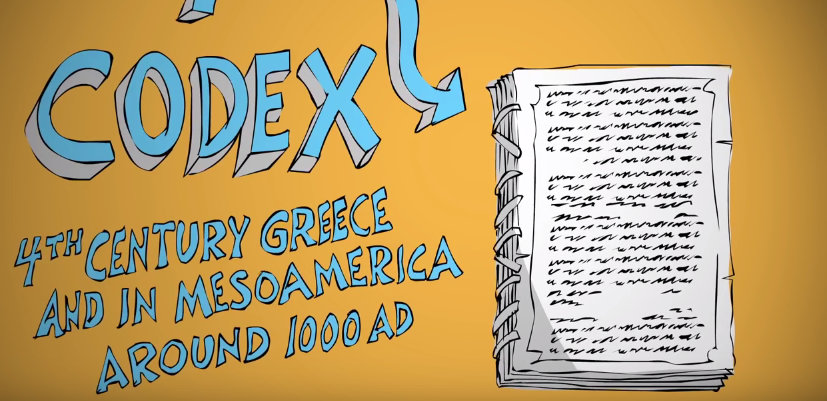 CODEX
4TH CENTURY GREECE
AND IN MESOAMERICA
AROUND 1000 AD